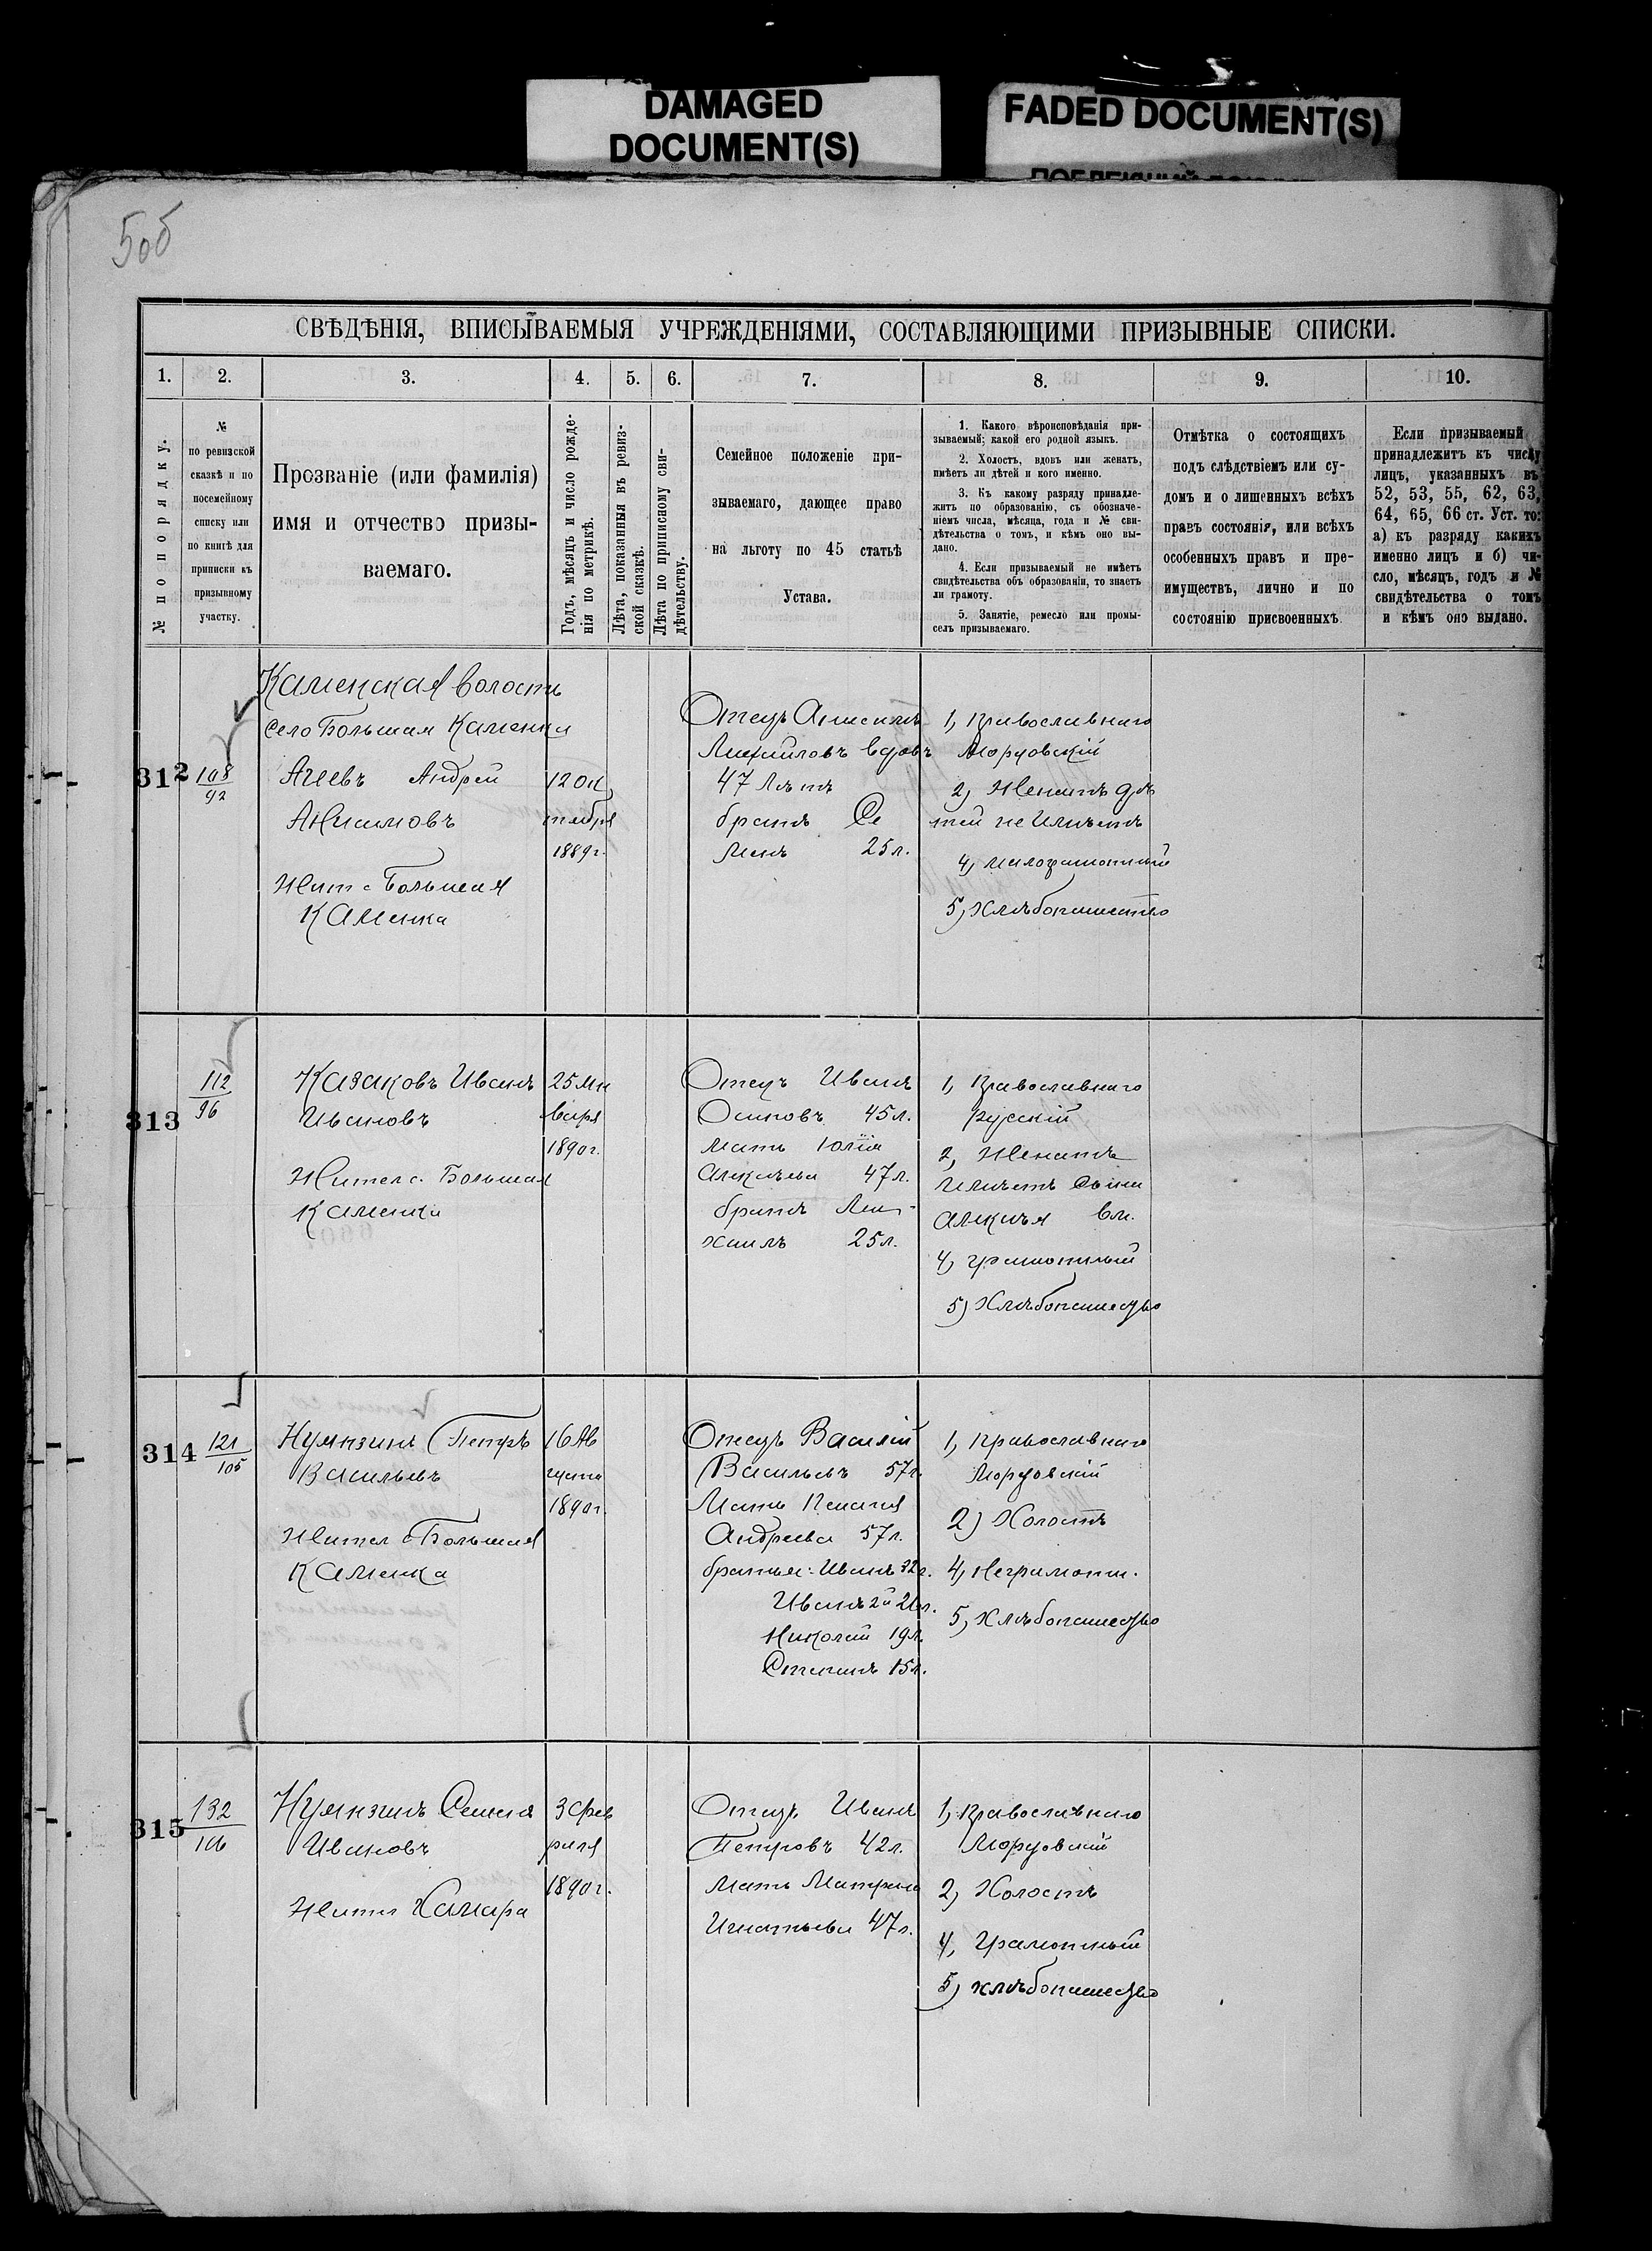 DAMAGED
DOCUMENT(S)
FADED DOCUMENT(S)
50б
СВѢДѢНІЯ, ВПИСЫВАЕМЫЯ УЧРЕЖДЕНІЯМИ, СОСТАВЛЯЮЩИМИ ПРИЗЫВНЫЕ СПИСКИ.
1. 2. 3. 4. 5. 6. 7. 8. 9. 10.
№ по порядку.
№
по ревизской
сказкѣ и по
посемейному
списку или
по книгѣ для
приписки къ
призывному
участку.
Прозваніе (или фамилія)
имя и отчество призы-
ваемаго.
Годъ, мѣсяцъ и число рожде-
нія по метрикѣ.
Лѣта, показанныя въ ревиз-
ской сказкѣ.
Лѣта по приписному сви-
дѣтельству.
Семейное положеніе при-
зываемаго, дающее право
на льготу по 45 статьѣ
Устава.
1. Какого вѣроисповѣданія при-
зываемый; какой его родной языкъ.
2. Холостъ, вдовъ или женатъ,
имѣетъ ли дѣтей и кого именно.
3. Къ какому разряду принадле-
житъ по образованію, съ обозначе-
ніемъ числа, мѣсяца, года и № сви-
дѣтельства о томъ, и кѣмъ оно вы-
дано.
4. Если призываемый не имѣетъ
свидѣтельства объ образованіи, то знаетъ
ли грамоту.
5. Занятіе, ремесло или промы-
селъ призываемаго.
Отмѣтка о состоящихъ
подъ слѣдствіемъ или су-
домъ и о лишенныхъ всѣхъ
правъ состоянія, или всѣхъ
особенныхъ правъ и пре-
имуществъ, лично и по
состоянію присвоенныхъ.
Если призываемый
принадлежитъ къ числу
лицъ, указанныхъ въ
52, 53, 55, 62, 63,
64, 65, 66 ст. Уст. то:
а) къ разряду какихъ
именно лицъ и б) чи-
сло, мѣсяцъ, годъ и №
свидѣтельства о томъ
и кѣмъ оно выдано.
Каменская волость
село Большая Каменка
312
108
92
Агеевъ Андрей
Анисимовъ
Жит с Большая
Каменка
12 Ок
тября
1889 г.
Отецъ Анисимъ
Михайловъ вдовъ
47 лѣтъ
братъ Се
менъ 25 л.
1, Православнаго
Мордовскій
2, Женатъ дѣ
тей не имѣетъ
4, малограмотный
5, Хлѣбопашество
313
112
96
Казаковъ Иванъ
Ивановъ
Жител с. Большая
Каменка
25 Ян
варя
1890 г.
Отецъ Иванъ
Осиповъ 45 л.
мать Юлія
Алексѣева 47 л.
братъ Ми-
хаилъ 25 л.
1, Православнаго
русскій
2, Женатъ
имѣетъ сына
Алексѣя
4, грамотный
5) Хлѣбопашество
314
121
105
Нумизинъ Петръ
Васильевъ
Жител с Большая
Каменка
16 Ав
густа
1890 г.
Отецъ Василій
Васильевъ 57 л.
Мать Пелагея
Андреева 57 л.
братья: Иванъ 32 г.
Иванъ 2й
Николай 19 л.
Степанъ 15 л.
1, Православнаго
Мордовскій
2) Холостъ
4, неграмотн.
5, Хлѣбопашество
315
132
106
Нумизинъ Семенъ
Ивановъ
Жител Самара
3 Фев
раля
1890 г.
Отецъ Иванъ
Петровъ 42 л.
Мать Матрена
Игнатьева 47 л.
1, Православнаго
Мордовскій
2, Холостъ
4, Грамотный
5) хлѣбопашество